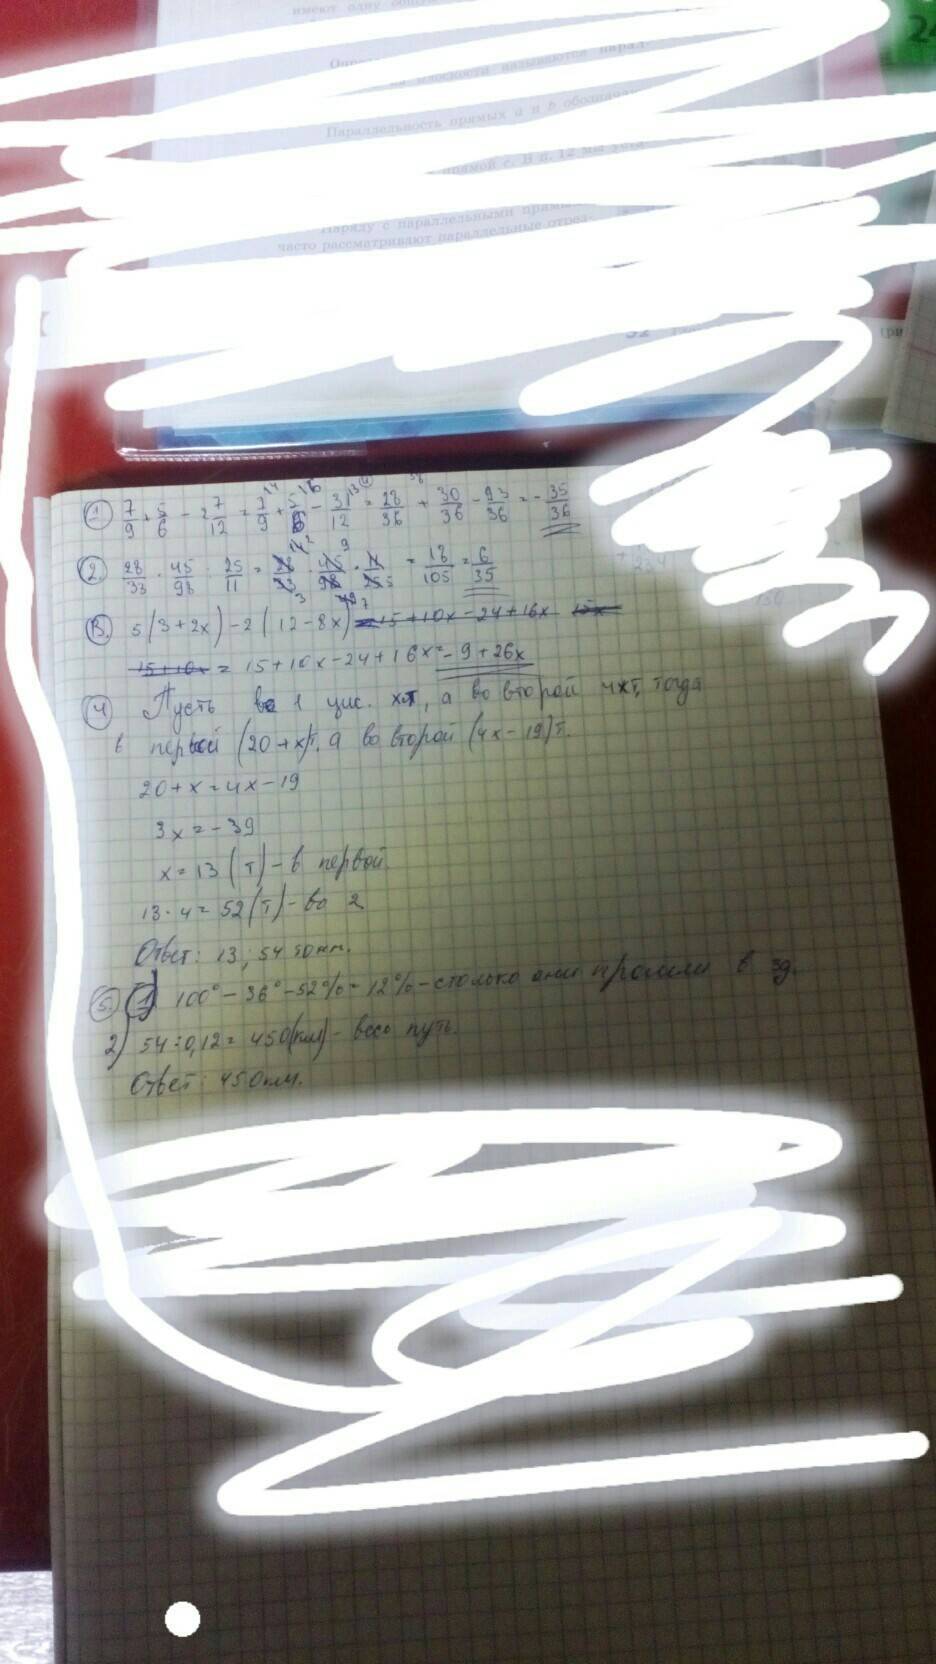 имеют одну
на плоскости называются парал-
Параллельность прямых a и b обознача
прямой c. В п. 12 мы уста
Наряду с параллельными прямы
часто рассматривают параллельные отрез-
24
① 7/9 + 5/6 - 2 7/12 = 7/9 + 5/6 - 31/12 = 28/36 + 30/36 - 93/36 = - 35/36
② 28/33 · 45/98 : 25/11 = 28/33 · 45/98 · 11/25 = 18/105 = 6/35
③. 5(3+2x) - 2(12-8x) = 15+10x-24+16x
15+10x = 15+10x-24+16x = -9+26x
④ Пусть в 1 цис. xт, а во второй 4xт, тогда
в первой (20+x)т, а во второй (4x-19)т.
20+x=4x-19
3x=-39
x=13 (т)-в первой.
13·4=52(т)-во 2
Ответ: 13; 54 тонн.
⑤. 1) 100°-36°-52%=12%-столько они прошли в 3д.
2) 54:0,12=450(км)-весь путь.
Ответ: 450км.